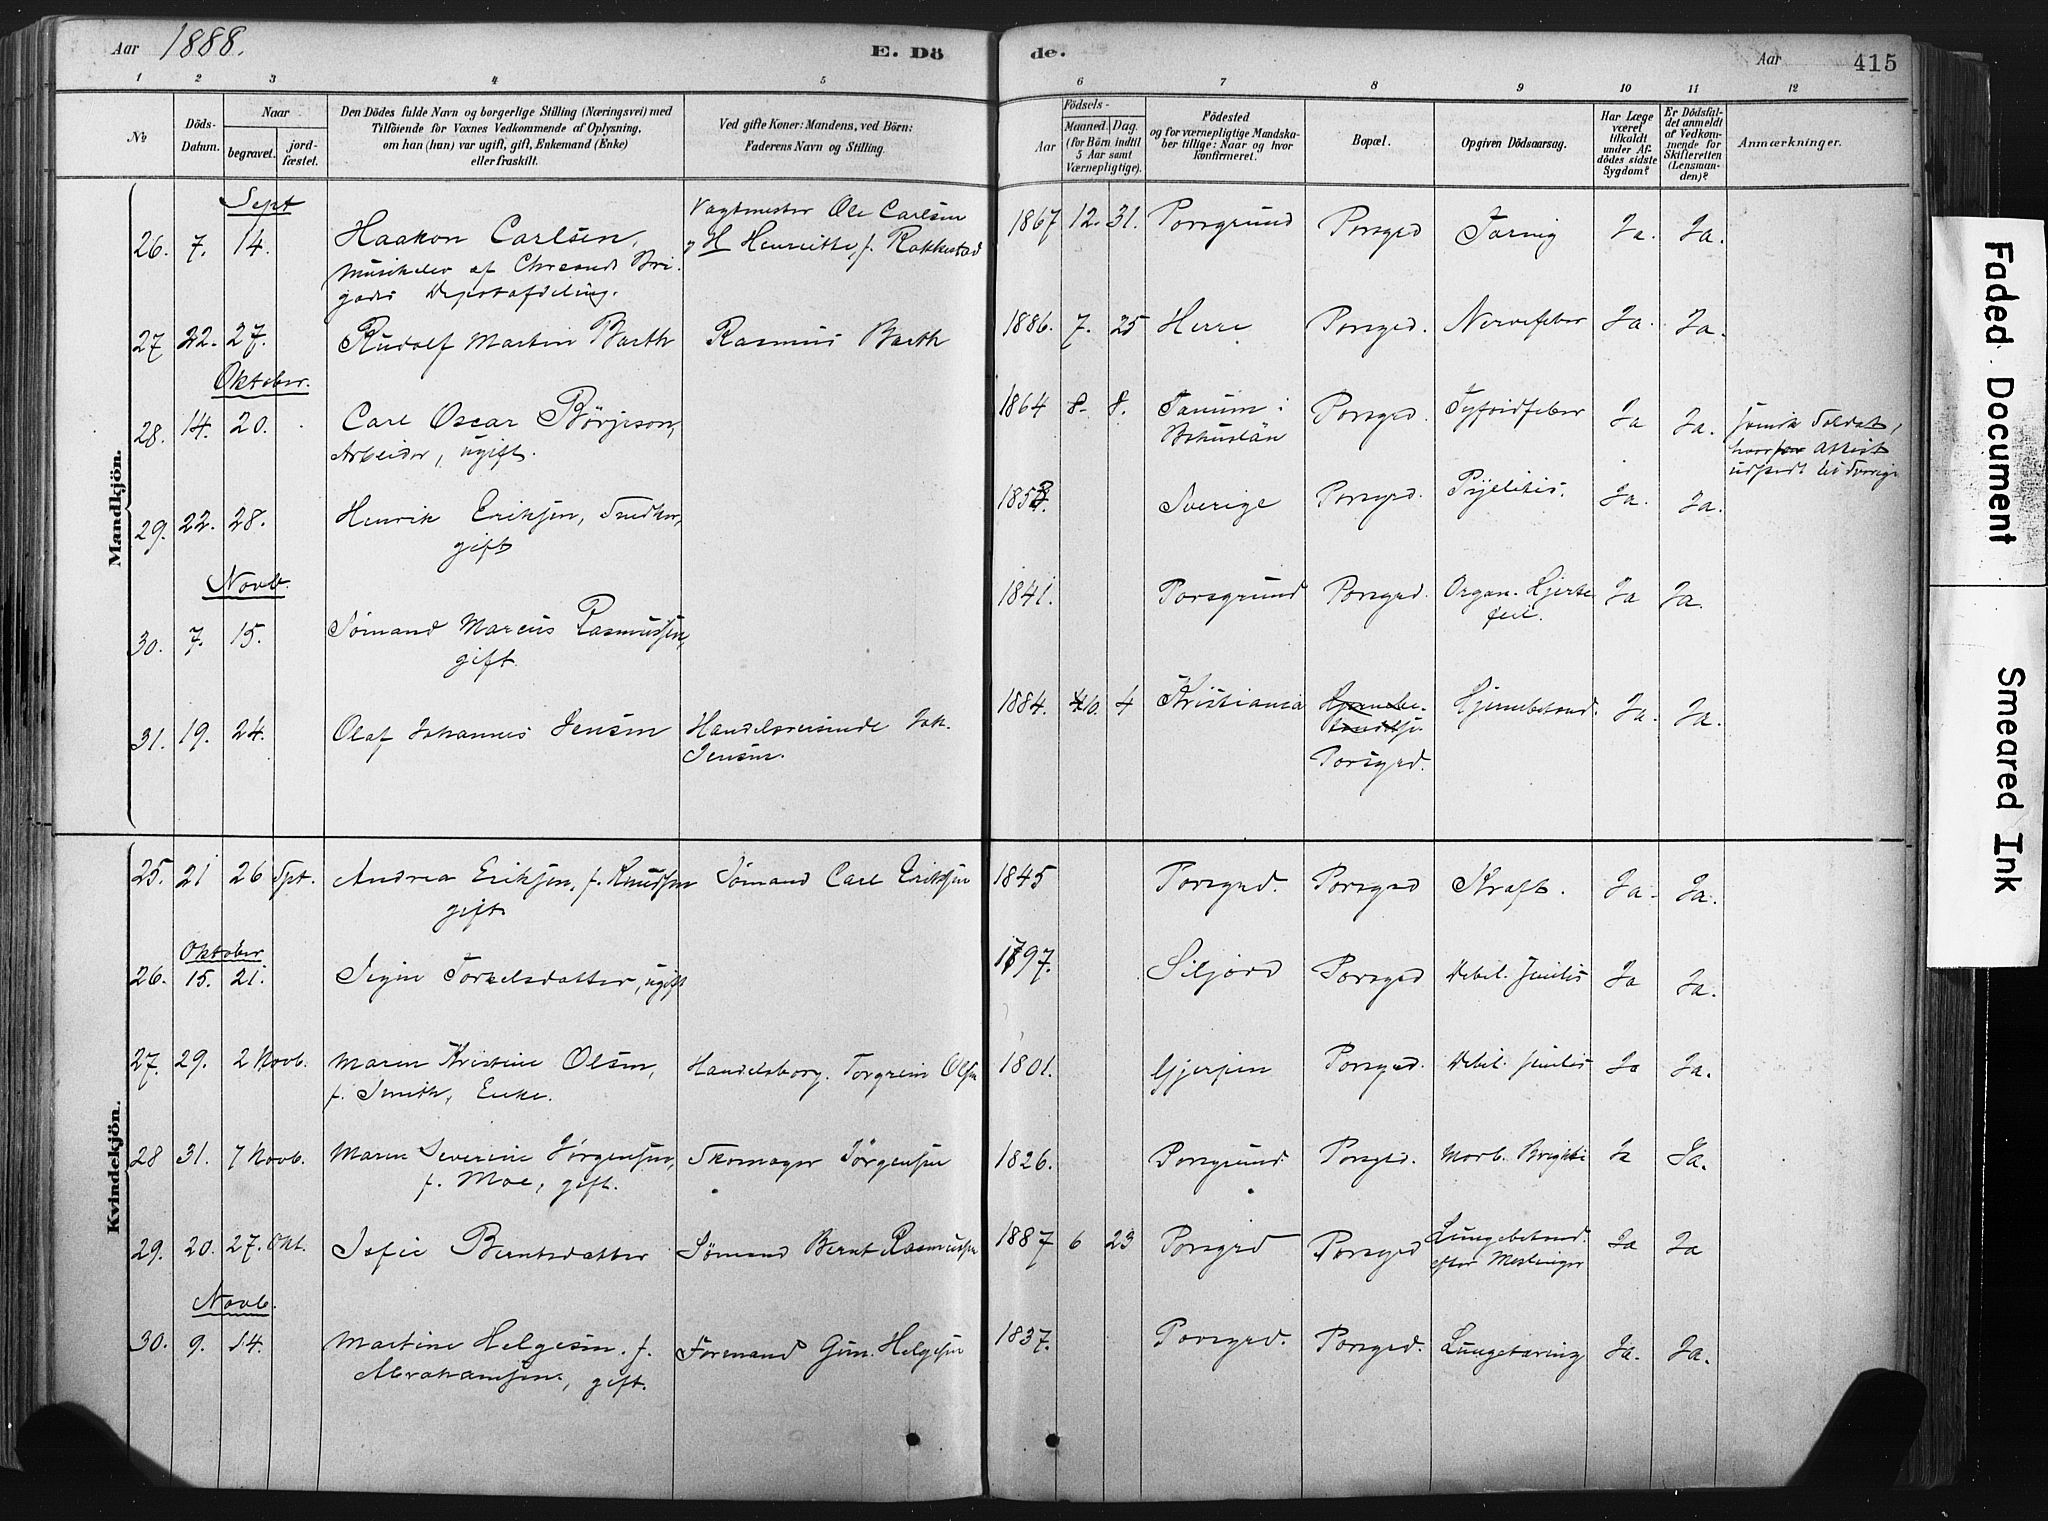 Aar 1888. E. Dö de. Aar 415
1 2 3 4 5 6 7 8 9 10 11 12
No
Döds-
Datum.
Naar
begravet.
jord-
fæstet.
Den Dödes fulde Navn og borgerlige Stilling (Næringsvei) med
Tilföiende for Voxnes Vedkommende af Oplysning,
om han (hun) var ugift, gift, Enkemand (Enke)
eller fraskilt.
Ved gifte Koner: Mandens, ved Börn:
Faderens Navn og Stilling.
Födsels-
Aar
Maaned. Dag.
(for Börn indtil
5 Aar samt
Værnepligtige).
Födested
og for værnepligtige Mandska-
ber tillige: Naar og hvor
konfirmeret.
Bopæl.
Opgiven Dödsaarsag.
Har Læge
været
tilkaldt
under Af-
dödes sidste
Sygdom?
Er Dödsfal-
det anmeldt
af Vedkom-
mende for
Skifteretten
(Lensman-
den)?
Anmærkninger.
Mandkjön.
Sept
26. 7. 14. Haakon Carlsen, Vagtmester Ole Carlsen 1867 12. 31. Porsgrund Porsgrd Tæring Ja. Ja.
Musikelev af Chrsands Bri- H Henriette, f. Rakkestad
gades Depotafdeling.
27 22. 27. Rudolf Martin Barth Rasmus Barth 1886. 7. 25 Herre Porsgrd. Nervefeber Ja. Ja.
Oktober.
28. 14. 20. Carl Oscar Börjeson, 1864 8. 8. Tanum i Porsgrd. Tyfoidfeber Ja Ja. svensk Soldat,
Arbeider, ugift. Bohuslän hvorfor Attest
udstedt til Sverige
29. 22. 28. Henrik Eriksen, Snedker, Sverige Porsgrd. Pyelitis. Ja. Ja.
gift
Novb.
30. 7. 15. Sømand Marcus Rasmussen, 1841. Porsgrund Porsgrd. Organ. Hjerte Ja Ja.
gift. feil.
31. 19. 24. Olaf Johannes Jensen Handelsreisende Joh. 1884. 10. 4 Kristiania Hjernebe- Hjernebetænd. Ja. Ja.
Jensen. Porsgrd.
Kvindekjön.
25. 21 26 Spt. Andrea Eriksen, f. Knudsen Sømand Carl Eriksen 1845 Porsgrd. Porsgrd Kræft. Ja. Ja.
gift
Oktober
26. 15. 21. Signe Torkelsdatter, ugift 1797. Siljord Porsgrd Debil. senilis Ja Ja.
27. 29. 2 Novb. Maren Kristine Olsen, Handelsborg. Torgrim Olsen 1801. Gjerpen Porsgrd. Debil. senilis Ja Ja.
f. Smith, Enke.
28 31. 7 Novb. Maren Severine Jørgensen, Skomager Jørgensen 1826. Porsgrund. Porsgrd. Morb. Brightii Ja Ja.
f. Moe, gift.
29. 20. 27. Okt. Sofie Berntsdatter Sømand Bernt Rasmussen 1887 6 23 Porsgrd Porsgrd Lungebetænd. Ja Ja
efter Meslinger
Novb.
30. 9. 14. Martine Helgesen. f. Formand Gun. Helgesen 1837. Porsgrd. Porsgrd. Lungetæring Ja. Ja.
Abrahamsen, gift.
Faded Document
Smeared Ink